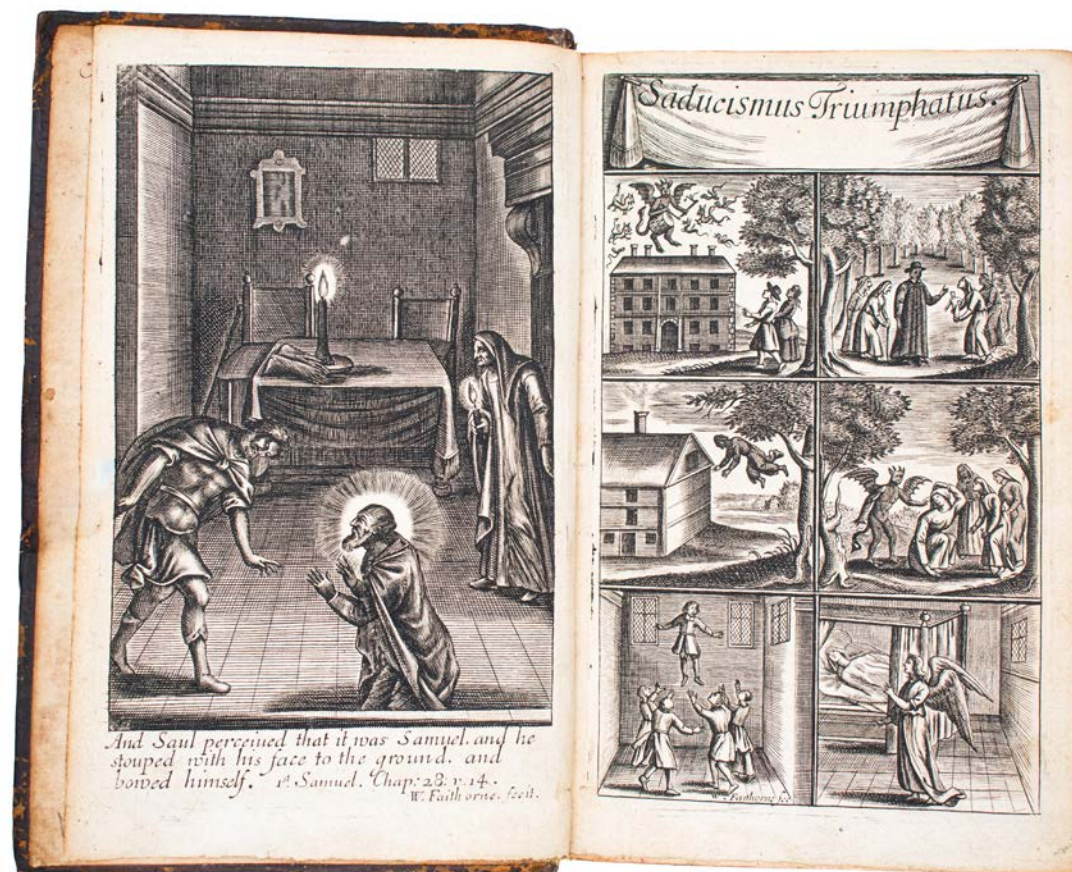 And Saul perceiued that it was Samuel. and he
stouped with his face to the ground. and
bowed himself. 1st. Samuel. Chap: 28. v. 14.
W. Faithorne. fecit.
Saducismus Triumphatus.
W. Faithorne fec